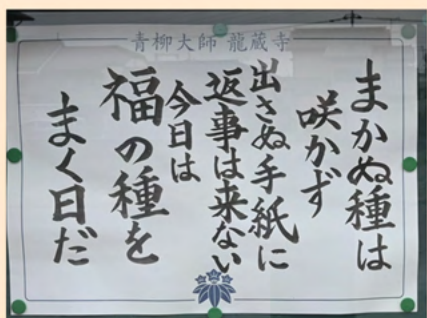 青柳大師 龍蔵寺
まかぬ種は
咲かず
出さぬ手紙に
返事は来ない
今日は
福の種を
まく日だ